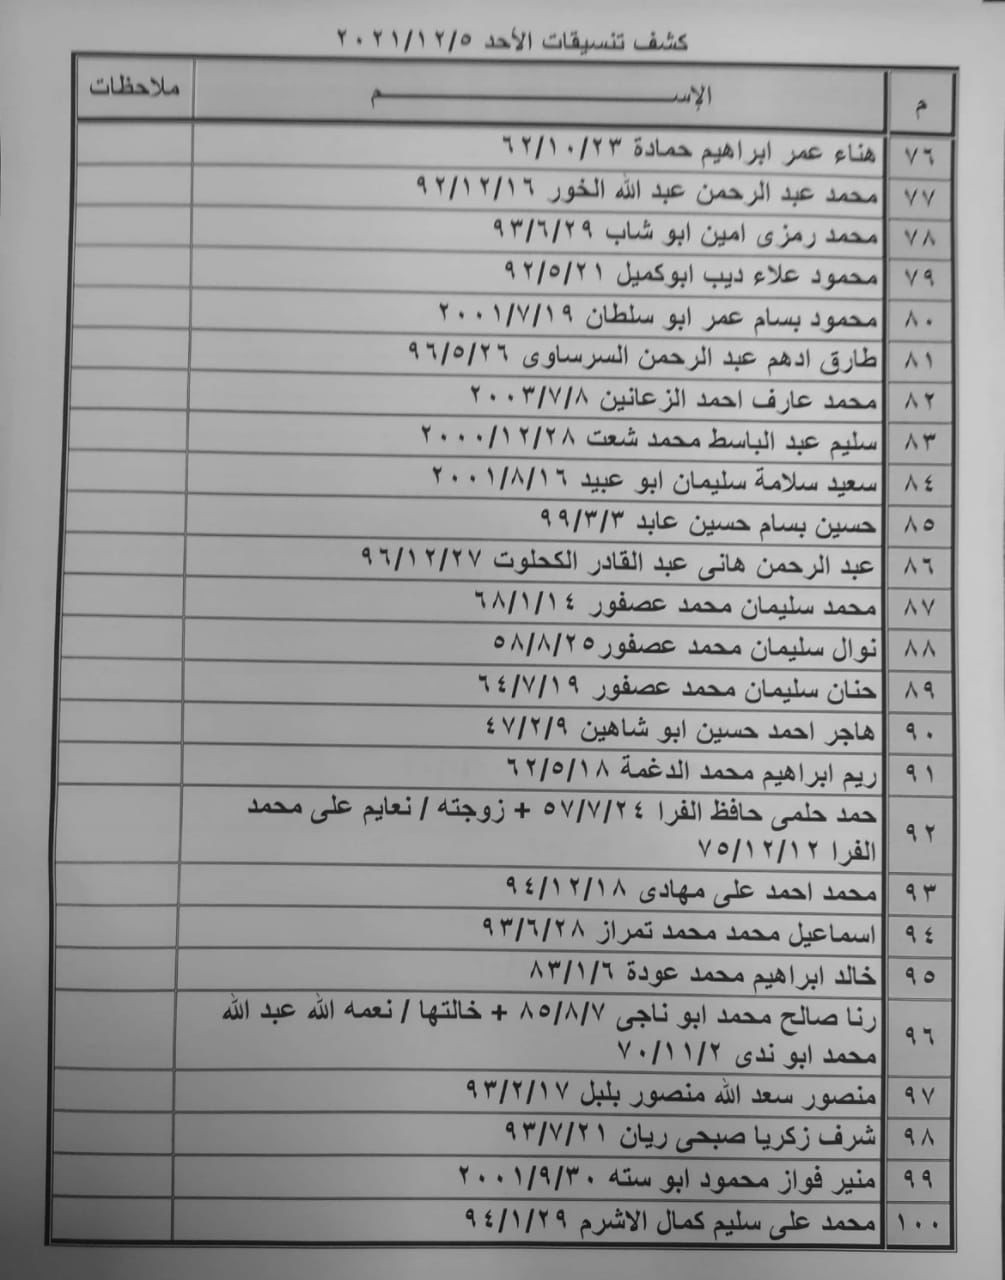 كشف تنسيقات الأحد ٢٠٢١/١٢/٥
م الإســـــــــــــــــــــــم ملاحظات
٧٦ هناء عمر ابراهيم حمادة ٦٢/١٠/٢٣
٧٧ محمد عبد الرحمن عبد الله الخور ٩٢/١٢/١٦
٧٨ محمد رمزى امين ابو شاب ٩٣/٦/٢٩
٧٩ محمود علاء ديب ابوكميل ٩٢/٥/٢١
٨٠ محمود بسام عمر ابو سلطان ٢٠٠١/٧/١٩
٨١ طارق ادهم عبد الرحمن السرساوى ٩٦/٥/٢٦
٨٢ محمد عارف احمد الزعانين ٢٠٠٣/٧/٨
٨٣ سليم عبد الباسط محمد شعت ٢٠٠٠/١٢/٢٨
٨٤ سعيد سلامة سليمان ابو عبيد ٢٠٠١/٨/١٦
٨٥ حسين بسام حسين عابد ٩٩/٣/٣
٨٦ عبد الرحمن هانى عبد القادر الكحلوت ٩٦/١٢/٢٧
٨٧ محمد سليمان محمد عصفور ٦٨/١/١٤
٨٨ نوال سليمان محمد عصفور٥٨/٨/٢٥
٨٩ حنان سليمان محمد عصفور ٦٤/٧/١٩
٩٠ هاجر احمد حسين ابو شاهين ٤٧/٢/٩
٩١ ريم ابراهيم محمد الدغمة ٦٢/٥/١٨
٩٢ حمد حلمى حافظ الفرا ٥٧/٧/٢٤ + زوجته / نعايم على محمد
الفرا ٧٥/١٢/١٢
٩٣ محمد احمد على مهادى ٩٤/١٢/١٨
٩٤ اسماعيل محمد محمد تمراز ٩٣/٦/٢٨
٩٥ خالد ابراهيم محمد عودة ٨٣/١/٦
٩٦ رنا صالح محمد ابو ناجى ٨٥/٨/٧ + خالتها / نعمه الله عبد الله
محمد ابو ندى ٧٠/١١/٢
٩٧ منصور سعد الله منصور بلبل ٩٣/٢/١٧
٩٨ شرف زكريا صبحى ريان ٩٣/٧/٢١
٩٩ منير فواز محمود ابو سته ٢٠٠١/٩/٣٠
١٠٠ محمد على سليم كمال الاشرم ٩٤/١/٢٩